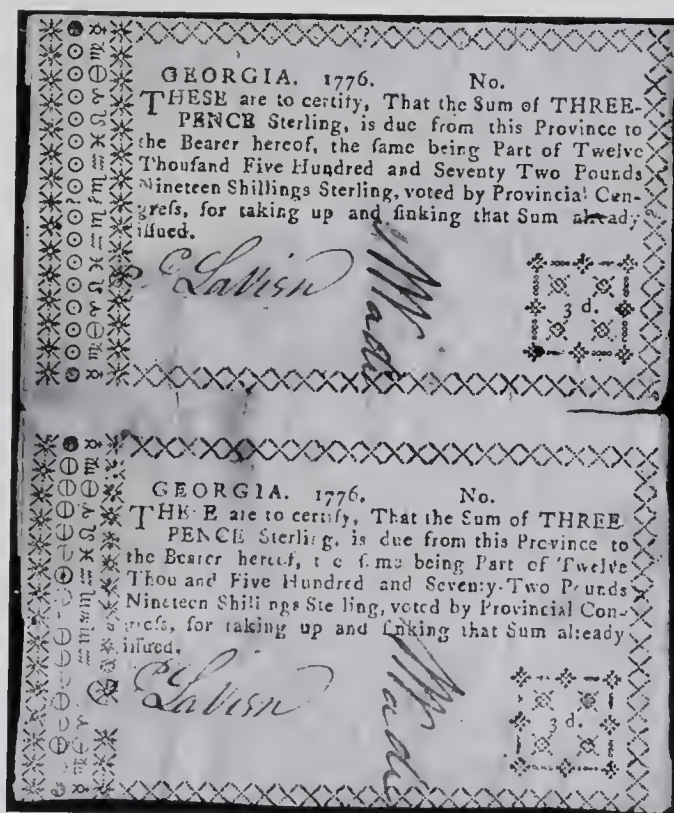 GEORGIA. 1776. No.
THESE are to certify, That the Sum of THREE-
PENCE Sterling, is due from this Province to
the Bearer hereof, the ſame being Part of Twelve
Thouſand Five Hundred and Seventy Two Pounds
Nineteen Shillings Sterling, voted by Provincial Con-
greſs, for taking up and ſinking that Sum already
iſſued.
3 d.
GEORGIA. 1776. No.
THE E are to certify, That the Sum of THREE
PENCE Sterling, is due from this Province to
the Bearer hereof, t e ſ me being Part of Twelve
Thou and Five Hundred and Seventy-Two Pounds
Nineteen Shill ngs Ste ling, voted by Provincial Con-
greſs, for taking up and ſinking that Sum already
iſſued.
3 d.